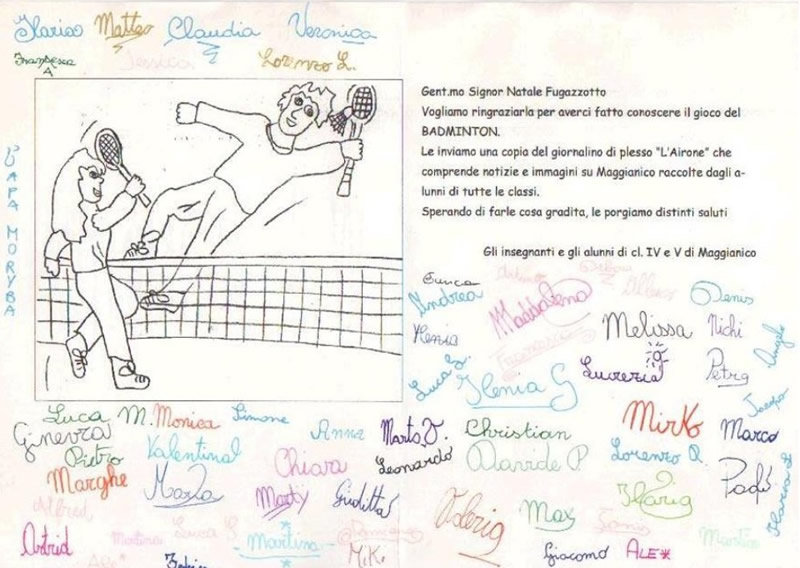 Ilarias Matteo Claudia Veronica
Francesca A Jessica Lorenzo L.
PAPA MORYBA
Gent.mo Signor Natale Fugazzotto
Vogliamo ringraziarla per averci fatto conoscere il gioco del
BADMINTON.
Le inviamo una copia del giornalino di plesso "L'Airone" che
comprende notizie e immagini su Maggianico raccolte dagli a-
lunni di tutte le classi.
Sperando di farle cosa gradita, le porgiamo distinti saluti
Gli insegnanti e gli alunni di cl. IV e V di Maggianico
Andrea Maddalena Denis
Melissa Michi
Lucrezia Petra
Luca S. Ilenia G
Luca M. Monica Simone
Mirko Marco
Ginevra Pietro Valentina Anna Marta D. Christian
Chiara Leonardo Davide P. Lorenzo
Marghe Marta Marty Giuditta
Alfred Valeria Max Ilaria
Astrid Martina Luca Martina MiKi
Giacomo ALE